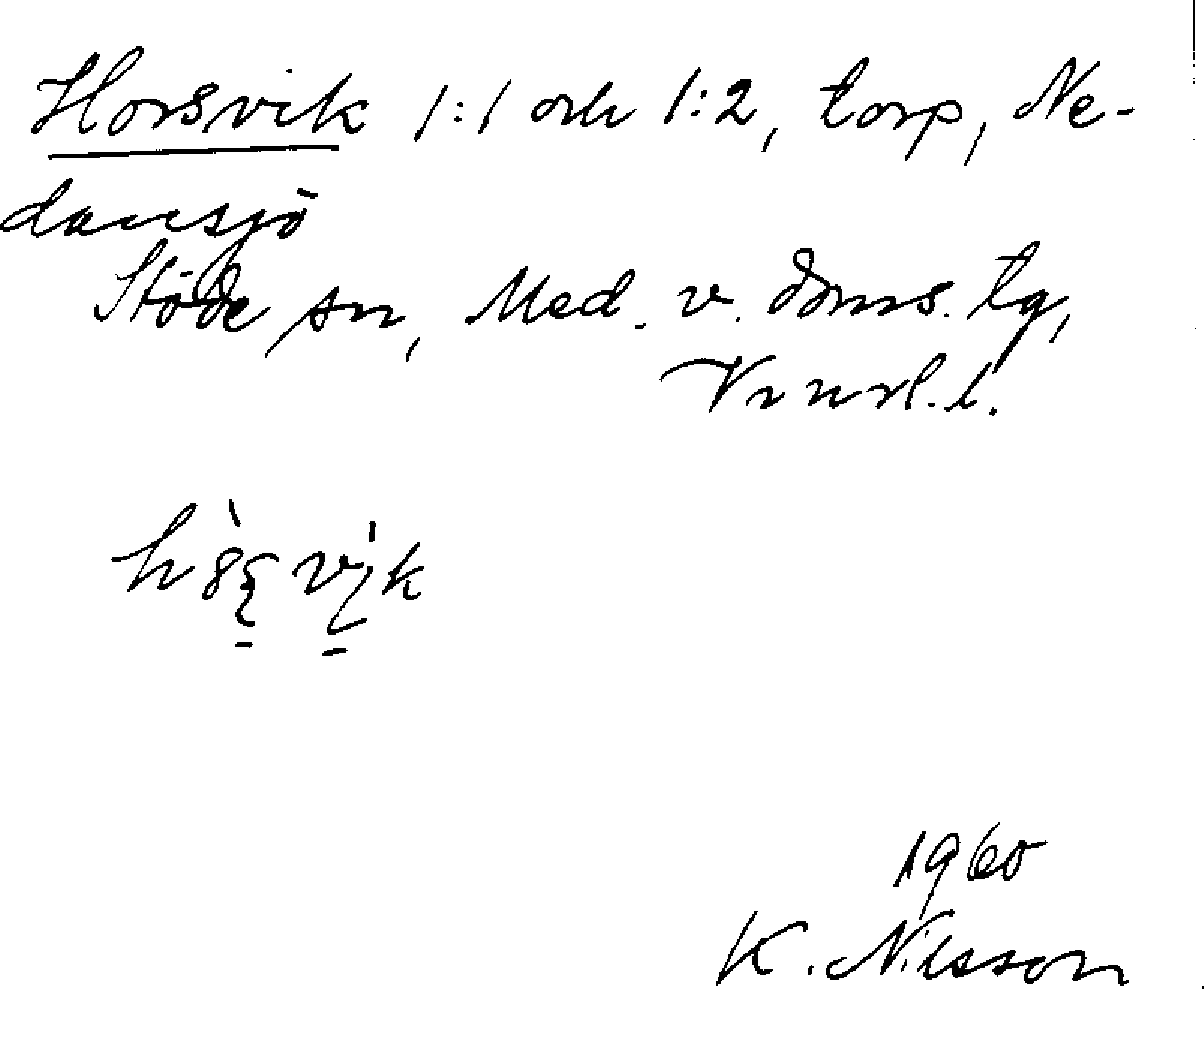 Horsvik 1:1 och 1:2, torp, Ne-
dansjö
Stöde sn, Med. v. doms. tg,
Vrnrl. l.
1960
K. Nilsson